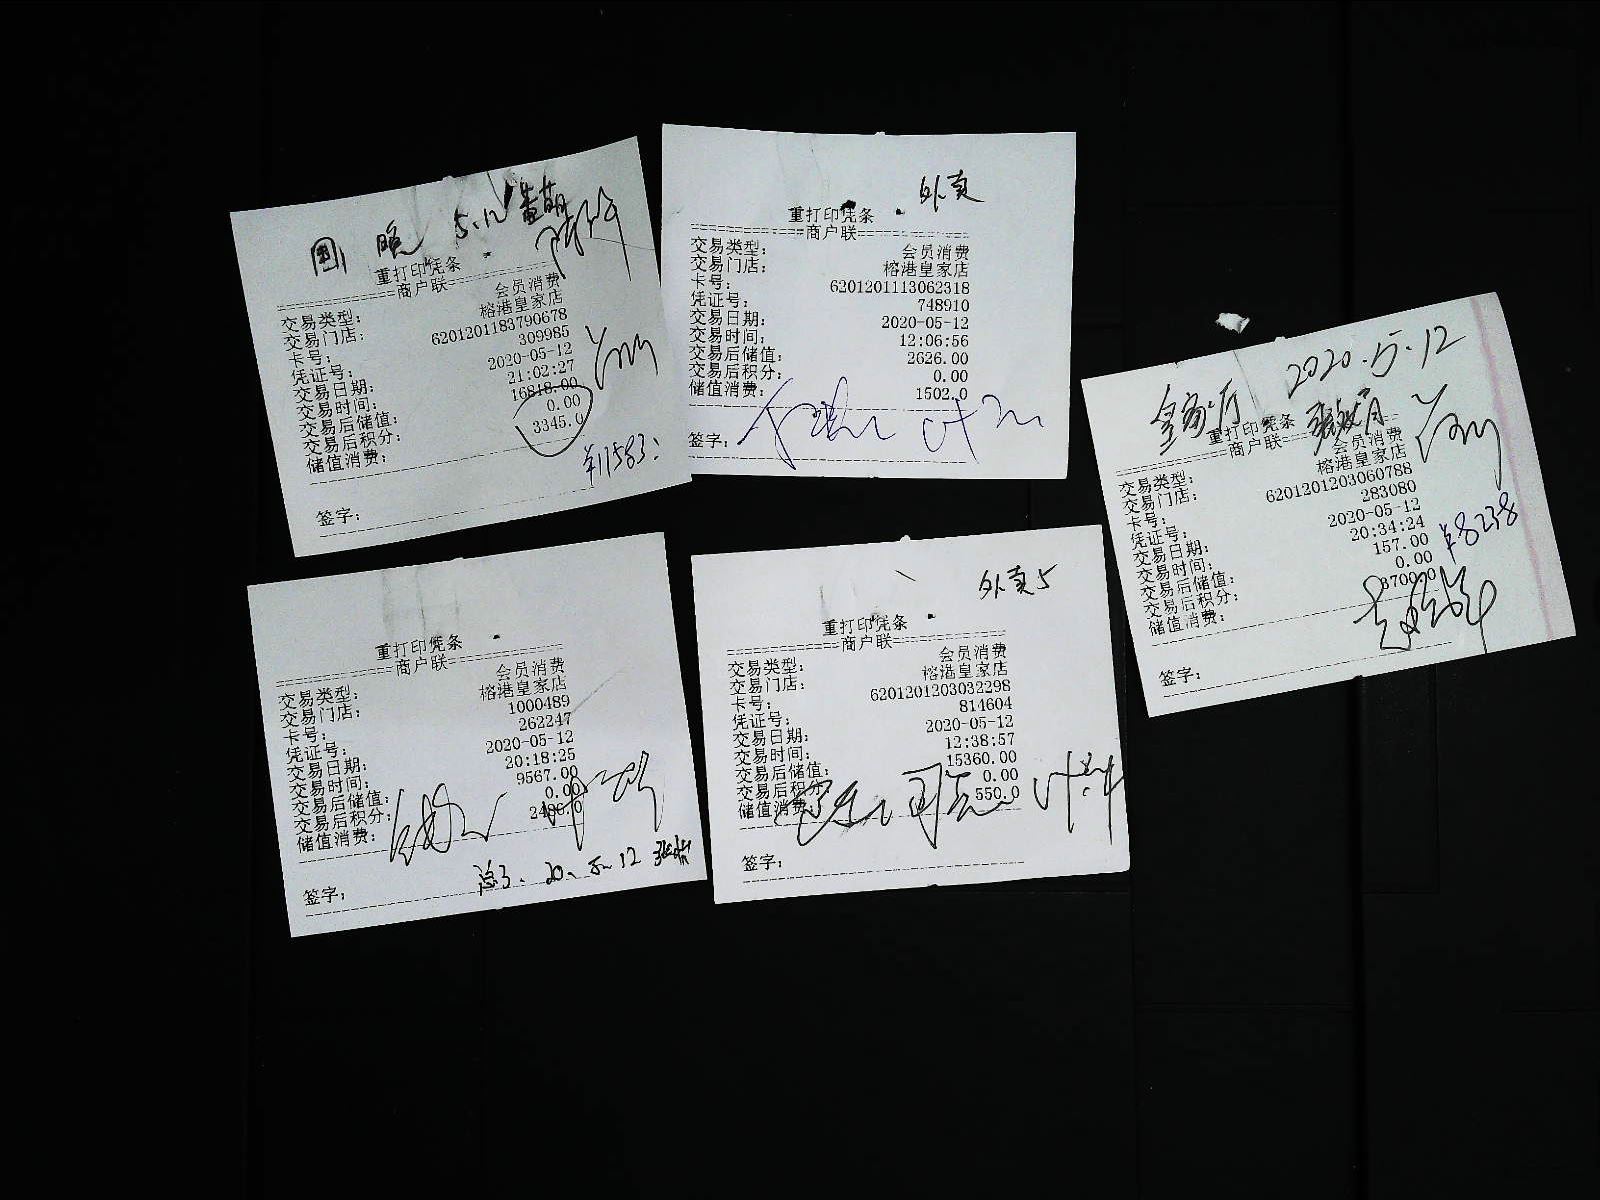 晚 5.12
重打印凭条
商户联
交易类型： 会员消费
交易门店： 榕港皇家店
卡号： 6201201183790678
凭证号： 309985
交易日期： 2020-05-12
交易时间： 21:02:27
交易后储值： 16818.00
交易后积分： 0.00
储值消费： 3345.0
¥11583
签字：
外卖
重打印凭条
商户联
交易类型： 会员消费
交易门店： 榕港皇家店
卡号： 6201201113062318
凭证号： 748910
交易日期： 2020-05-12
交易时间： 12:06:56
交易后储值： 2626.00
交易后积分： 0.00
储值消费： 1502.0
签字：
2020.5.12
重打印凭条
商户联
交易类型： 会员消费
交易门店： 榕港皇家店
卡号： 6201201203060788
凭证号： 283080
交易日期： 2020-05-12
交易时间： 20:34:24
交易后储值： 157.00
交易后积分： 0.00
储值消费：
¥8238
签字：
重打印凭条
商户联
交易类型： 会员消费
交易门店： 榕港皇家店
卡号： 1000489
凭证号： 262247
交易日期： 2020-05-12
交易时间： 20:18:25
交易后储值： 9567.00
交易后积分： 0.00
储值消费：
20.5.12
签字：
外卖5
重打印凭条
商户联
交易类型： 会员消费
交易门店： 榕港皇家店
卡号： 6201201203032298
凭证号： 814604
交易日期： 2020-05-12
交易时间： 12:38:57
交易后储值： 15360.00
交易后积分 0.00
储值消费： 550.0
签字：